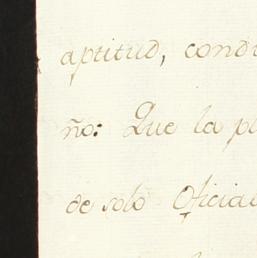 aptitud, condu
ño: Que la pl
de solo Oficial